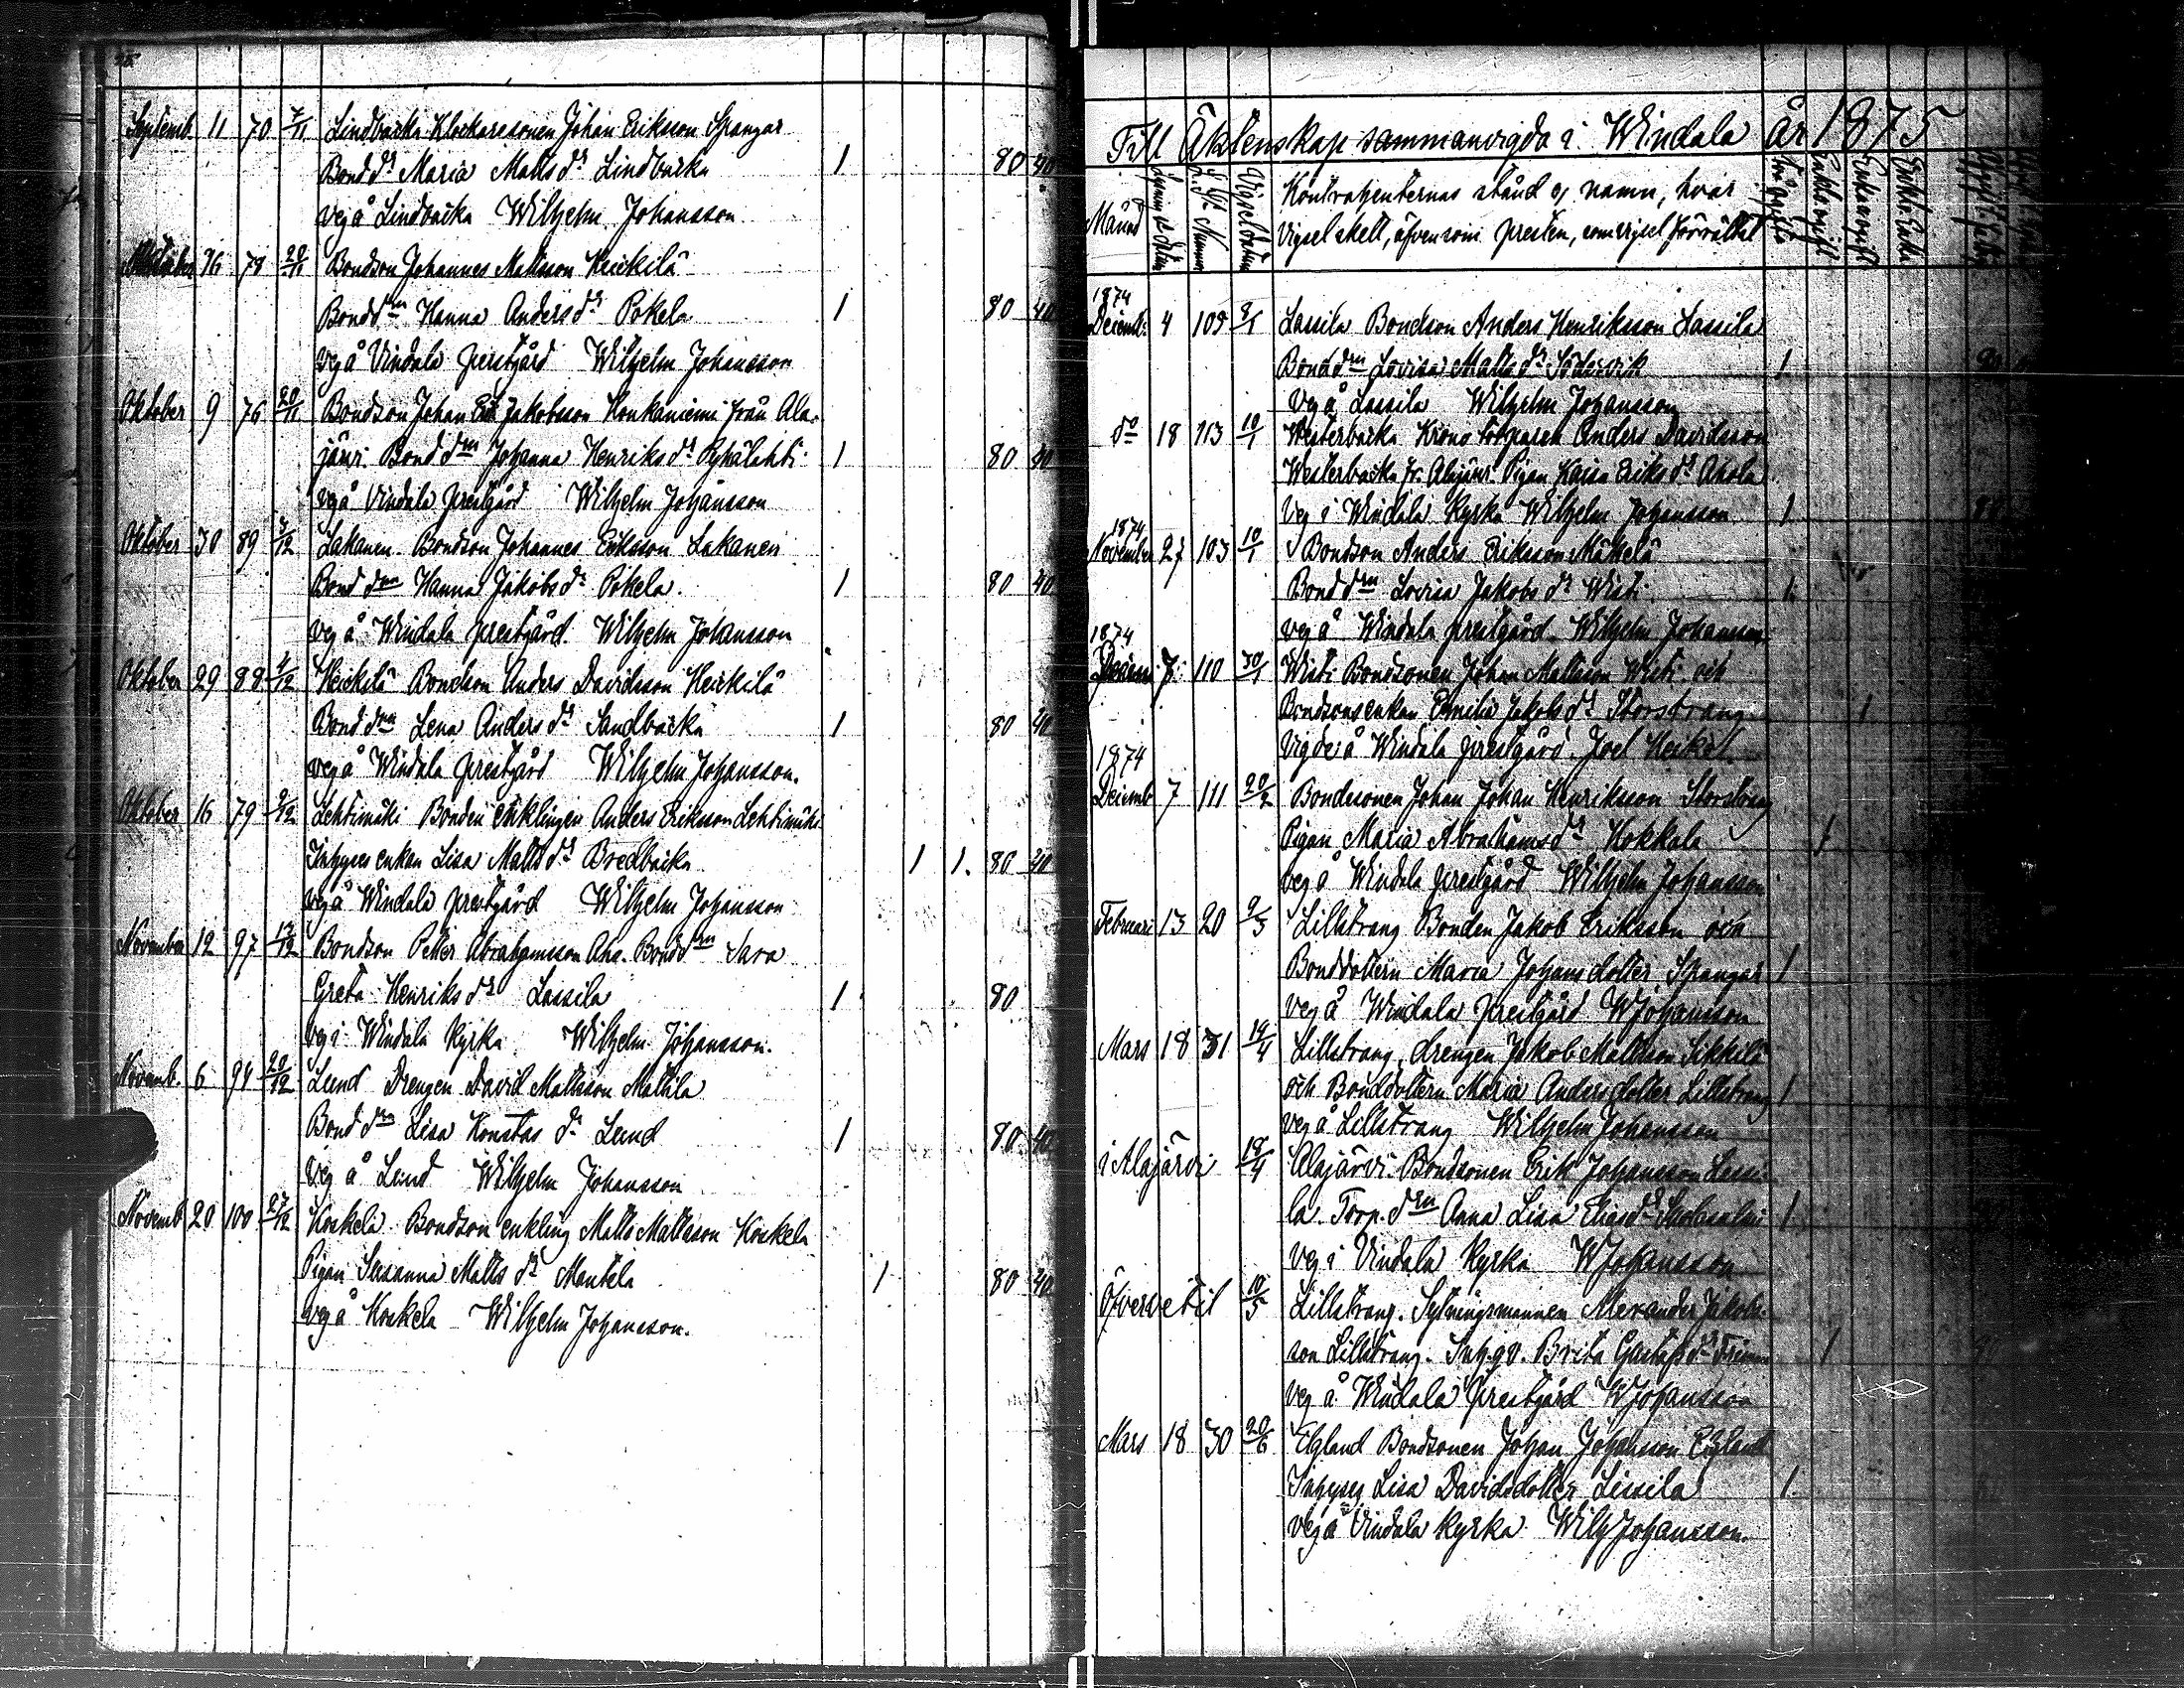 Septemb. 11 70 7/11 Lindbacka Klockaresonen Johan Eriksson Spangar
Bond dr Maria Matts dr Lindbacka 1 80 40
veg å Lindbacka Wilhelm Johansson
Oktober 16 78 20/11 Bondson Johannes Mattsson Heickilä
Bond drn Hanna Anders dr Pokela 1 80 40
veg å Vindala prestgård Wilhelm Johansson
Oktober 9 76 20/11 Bondson Johan Jakobsson Koukaniemi från Ala-
järvi. Bond drn Johanna Henriks dr Pyhälahti 1 80 40
veg å Vindala prestgård Wilhelm Johansson
Oktober 30 89 3/12 Lakanen. Bondson Johannes Eriksson Lakanen
Bond drn Hanna Jakobs dr Pokela. 1 80 40
veg å Windala prestgård. Wilhelm Johansson
Oktober 29 88 4/12 Heickilä Bondson Anders Davidsson Heickilä
Bond drn Lena Anders dr Sandbacka 1 80 40
veg å Windala prestgård Wilhelm Johansson.
Oktober 16 79 9/12 Lehtimäki Bonden enklingen Anders Eriksson Lehtimäki
Inhyses enkan Lisa Matts dr Bredbacka 1 1. 80 40
veg å Windala prestgård Wilhelm Johansson
November 12 97 13/12 Bondson Petter Abrahamsson Aho. Bond drn Sara
Greta Henriks dr Lassila 1 80
veg i Windala kyrka Wilhelm Johansson.
Novemb. 6 94 20/12 Lund Drengen David Mattsson Mattila
Bond drn Lisa Konstas dr Lund 1 80 40
Veg å Lund Wilhelm Johansson
Novemb 20 100 27/12 Koskela Bondson enkling Matts Mattsson Koskela
Pigan Susanna Matts dr Mantela 1 80 40
veg å Koskela Wilhelm Johansson.
Till Äktenskap sammanvigda i Windala år 1875
Månd Kontrahenternas stånd o namn, hvar
Vigsel skett, äfvensom presten, som vigsel förrättat
1874
Decemb. 4 109 8/1 Lassila Bondson Anders Henriksson Lassila
Bond drn Lovisa Matts dr Södervik 1
Veg å Lassila Wilhelm Johansson
do 18 113 10/1 Westerbacka Krono torparen Anders Davidsson
Westerbacka fr. Alajärvi Pigan Kaisa Eriks dr Ahola
Veg i Windala Kyrka Wilhelm Johansson 1
1874
November 27 103 10/1 Bondson Anders Eriksson Mäkelä
Bond drn Lovisa Jakobs dr Wisti 1.
veg å Windala prestgård Wilhelm Johansson
1874
Decem 7. 110 30/1 Wisti Bondsonen Johan Mattsson Wisti och
Bondsons enkan Emilia Jakobs dr Storstrang 1
Vigde å Windala prestgård. Joel Heikel.
1874
Decemb 7 111 20/2 Bondesonen Johan Johan Henriksson Storstrang
Pigan Maria Abrahams dr Kokkala 1
veg å Windala prestgård Wilhelm Johansson
Februari 13 20 9/3 Lillstrang Bonden Jakob Eriksson och
Bonddottern Maria Johansdotter Spangar 1
Veg å Windala prestgård WJohansson
Mars 18 31 14/4 Lillstrang, drengen Jakob Mattsson Sikkilä
och Bonddottern Maria Andersdotter Lillstrang 1
veg å Lillstrang Wilhelm Johansson
i Alajärvi 18/4 Alajärvi Bondsonen Erik Johansson Lassi-
la. Torp. drn Anna Lisa Elias dr 1
Veg i Vindala Kyrka WJohansson
Öfvervetil 10/5 Lillstrang. Sytningsmannen Alexander Jakobs-
son Lillstrang. Inh.qv. Brita Gustafs dr 1
veg å Windala prestgård WJohansson
Mars 18 30 20/6 Elgland Bondsonen Johan Johansson Elgland
Inhyses Lisa Davidsdotter Lissila 1.
veg å Vindala kyrka Wilh Johansson.